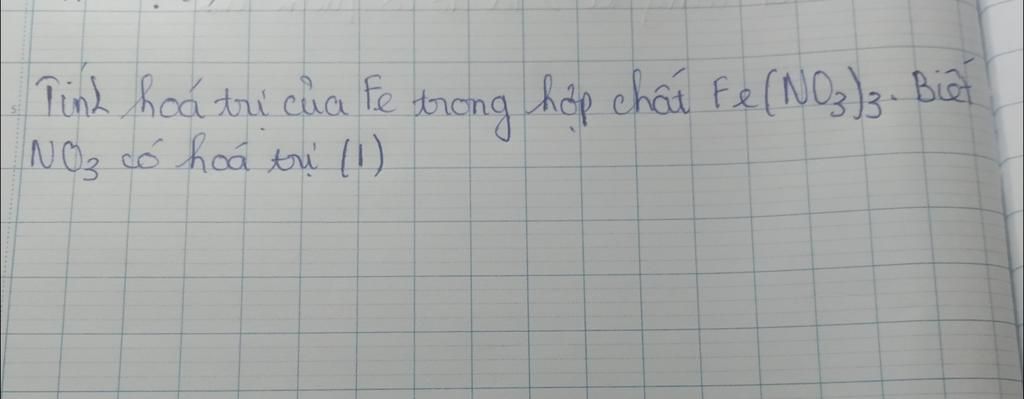 Tính hoá trị của Fe trong hợp chất Fe(NO3)3. Biết
NO3 có hoá trị (1)